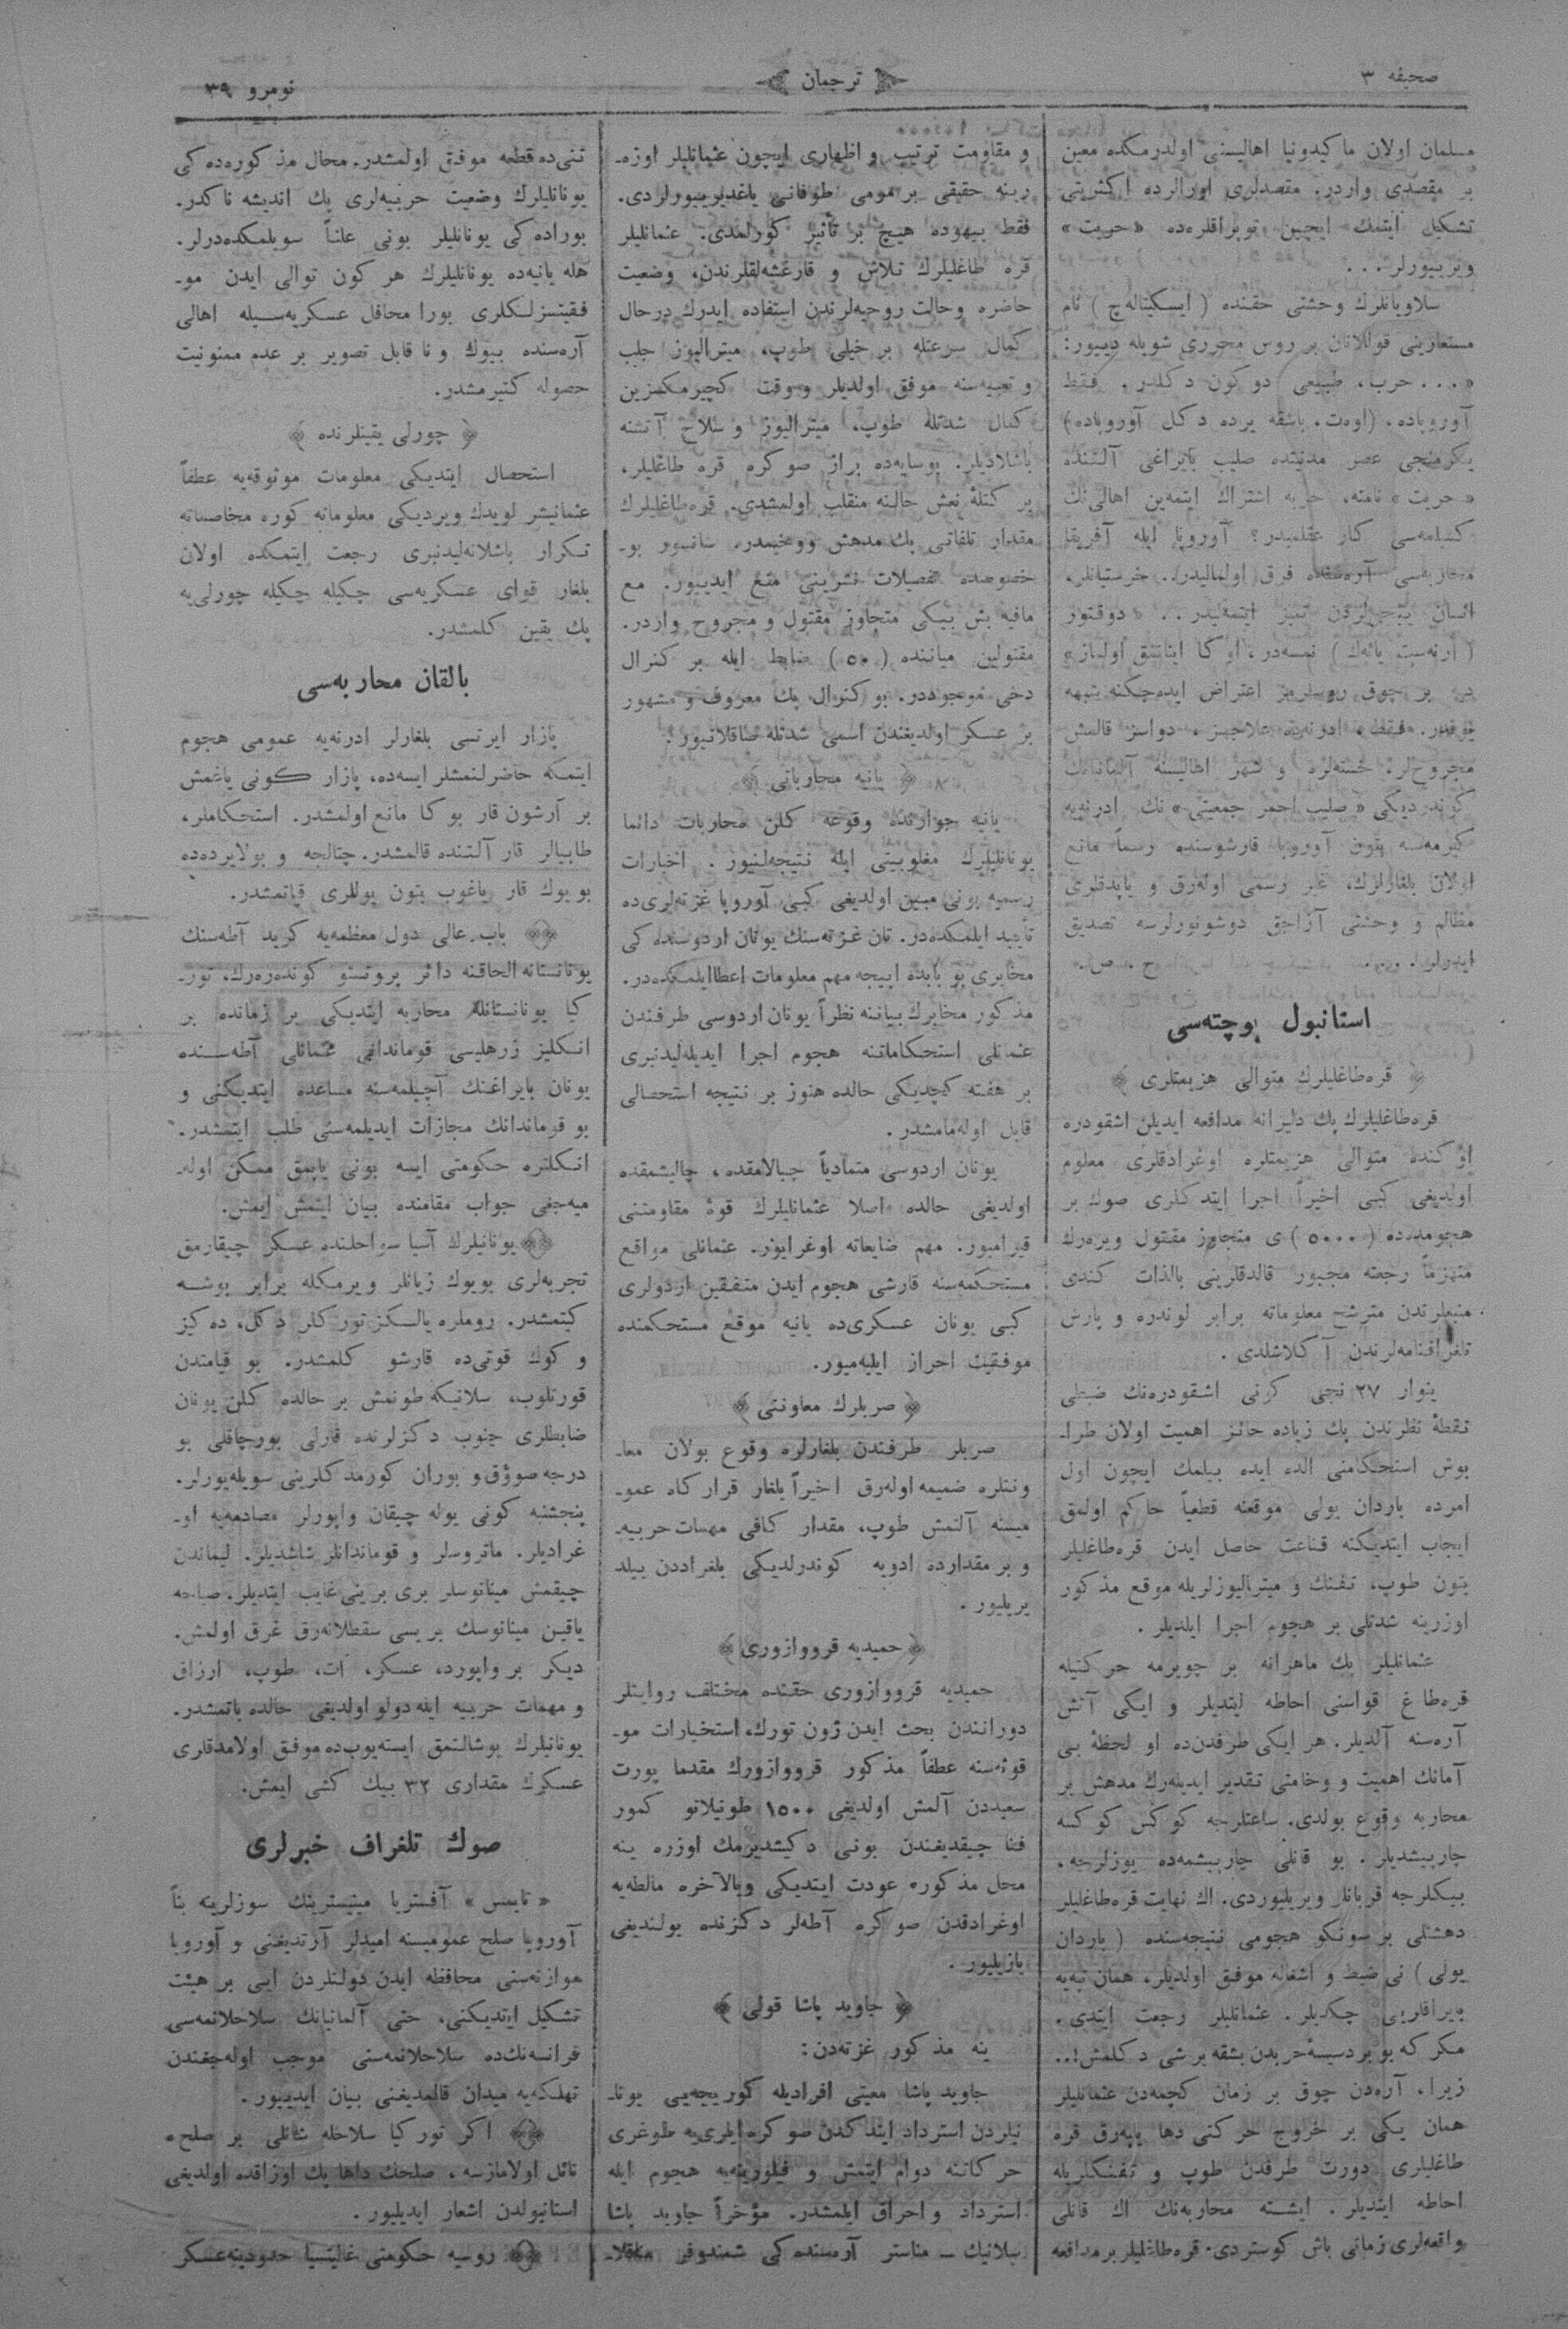 صحیفه ۳
ترجمان
نومرو ۳۹
مسلمان اولان ماكیدونیا اهالیسنی اولدرمكده معین
بر مقصدی واردر. مقصدلری اورالرده اكثریتی
تشكیل ایتمك ایچین توپراقلرده «حریت»
ویرییورلر...
سلاویانلرك وحشتی حقنده (ایسكیتالهچ) نام
مستعارینی قوللانان بر روس محرری شویله دییور:
«... حرب، طبیعی دوكون دكلدر. فقط
آوروپاده. (اوت، باشقه یرده دكل آوروپاده)
یكرمنجی عصر مدنیتده صلیب بایراغی آلتنده
«حریت» نامنه، حربه اشتراك ایتمهین اهالینك
كسلمهسی كار عقلمیدر؟ آوروپا ایله آفریقا
محاربهسی آرهسنده فرق اولمالیدر.. خرستیانلر،
انسان ییجیلردن تمیز ایتمهلیدر.. «دوقتور
(ارنهست یانهك) نمسهدر، اوكا ایناتنق اولماز»
دیه بر چوق روسلریز اعتراض ایدهجكنه شبهه
یوقدر. فقط، ادرنهده علاجسز، دواسز قالمش
مجروحلر، خستهلره و شهر اهالیسنه آلمانیانك
كوندردیكی «صلیب احمر جمعیتی» نك ادرنهیه
كیرمهسنه بتون آوروپا قارشوسنده رسماً مانع
اولان بلغارلرك، غیر رسمی اولهرق و یاپدقلری
مظالم و وحشتی آزاجق دوشونورلرسه تصدیق
ایدرلر... ح. ص.
استانبول پوچتهسی
﴿ قرهطاغلیلرك متوالی هزیمتلری ﴾
قرهطاغلیلرك پك دلیرانه مدافعه ایدیلن اشقودره
اوكنده متوالی هزیمتلره اوغرادقلری معلوم
اولدیغی كبی اخیراً اجرا ایتدكلری صوك بر
هجومدهده (۵۰۰۰) ی متجاوز مقتول ویرهرك
منهزماً رجعته مجبور قالدقلرینی بالذات كندی
منبعلرندن مترشح معلوماته برابر لوندره و پارس
تلغرافنامهلرندن آكلاشلدی.
ینوار ۲۷ نجی كونی اشقودرهنك ضبطی
نقطهٔ نظرندن پك زیاده حائز اهمیت اولان طرا-
بوش استحكامنی الده ایده بیلمك ایچون اول
امرده باردان یولی موقعنه قطعیاً حاكم اولمق
ایجاب ایتدیكنه قناعت حاصل ایدن قرهطاغلیلر
بتون طوپ، تفنك و میترالیوزلریله موقع مذكور
اوزرینه شدتلی بر هجوم اجرا ایلدیلر.
عثمانلیلر پك ماهرانه بر چویرمه حركتیله
قرهطاغ قواسنی احاطه ایتدیلر و ایكی آتش
آرهسنه آلدیلر. هر ایكی طرفدنده او لحظهٔ بی
آمانك اهمیت و وخامتی تقدیر ایدیلهرك مدهش بر
محاربه وقوع بولدی. ساعتلرجه كوكس كوكسه
چارپیشدیلر. بو قانلی چارپیشمهده یوزلرجه،
بیكلرجه قربانلر ویریلیوردی. اك نهایت قرهطاغلیلر
دهشتلی بر سونكو هجومی نتیجهسنده (باردان
یولی) نی ضبط و اشغاله موفق اولدیلر، همان تپهیه
بیراقلرینی چكدیلر. عثمانلیلر رجعت ایتدی.
مكركه بو بر دسیسهٔ حربدن بشقه بر شی دكلمش!..
زیرا، آرهدن چوق بر زمان كچمهدن عثمانلیلر
همان یكی بر خروج حركتی دها یاپهرق قره
طاغلیلری دورت طرفدن طوپ و تفنكلریله
احاطه ایتدیلر. ایشته محاربهنك اك قانلی
واقعهلری زمانی باش كوستردی. قرهطاغلیلر بر مدافعه
و مقاومت ترتیب و اظهاری ایچون عثمانلیلر اوزه-
رینه حقیقی بر مومی طوفانی یاغدیرییورلردی.
فقط بیهوده هیچ بر تأثیر كورلمدی. عثمانلیلر
قره طاغلیلرك تلاش و قارغشهلقلرندن، وضعیت
حاضره و حالت روحیهلرندن استفاده ایدرك درحال
كمال سرعتله بر خیلی طوپ، میترالیوز جلب
و تعبیهسنه موفق اولدیلر و وقت كچیرمكمزین
كمال شدتله طوپ، میترالیوز و سلاح آتشنه
باشلادیلر. بوسایهده براز صوكره قره طاغلیلر،
بر كتلهٔ نعش حالنه منقلب اولمشدی. قرهطاغلیلرك
مقدار تلفاتی پك مدهش و وخیمدر. سانسور بو-
خصوصده تفصیلات نشرینی منع ایدییور. مع
مافیه بش بیكی متجاوز مقتول و مجروح واردر.
مقتولین میاننده (۵۰) ضابط ایله بر كنرال
دخی موجوددر. بو كنرال پك معروف و مشهور
بر عسكر اولدیغندن اسمی شدتله صاقلانیور.
﴿ یانیه محارباتی ﴾
یانیه جوارنده وقوعه كلن محاربات دائما
یونانلیلرك مغلوبیتی ایله نتیجهلنیور. اخبارات
رسمیه بونی مبین اولدیغی كبی آوروپا غزتهلریده
تأیید ایلمكدهدر. تان غزتهسنك یونان اردوسنده كی
مخابری بو بابده ایپیجه مهم معلومات اعطاایلمكدهدر.
مذكور مخابرك بیاننه نظراً یونان اردوسی طرفندن
عثمانلی استحكاماتنه هجوم اجرا ایدیلهلیدنبری
بر هفته كچدیكی حالده هنوز بر نتیجه استحصالی
قابل اولهمامشدر.
یونان اردوسی متمادیاً چبالامقده، چالیشمقده
اولدیغی حالده اصلا عثمانلیلرك قوهٔ مقاومتنی
قیرامیور. مهم ضایعاته اوغرایور. عثمانلی مواقع
مستحكمهسنه قارشی هجوم ایدن متفقین اردولری
كبی یونان عسكریده یانیه موقع مستحكمنده
موفقیت احراز ایلیهمیور.
﴿ صربلرك معاونتی ﴾
صربلر طرفندن بلغارلره وقوع بولان معا-
ونتلره ضمیمه اولهرق اخیراً بلغار قراركاه عمو-
میسنه آلتمش طوپ، مقدار كافی مهمات حربیه-
و بر مقدارده ادویه كوندرلدیكی بلغراددن بیلد
یریلیور.
﴿ حمیدیه قرووازوری ﴾
حمیدیه قرووازوری حقنده مختلف روایتلر
دورانندن بحث ایدن ژون تورك، استخبارات مو-
ثوقهسنه عطفاً مذكور قرووازورك مقدما پورت
سعیددن آلمش اولدیغی ۱۵۰۰ طونیلاتو كمور
فنا چیقدیغندن بونی دكیشدیرمك اوزره ینه
محل مذكوره عودت ایتدیكی وبالآخره مالطهیه
اوغرادقدن صوكره آطهلر دكزنده بولندیغی
یازیلیور.
﴿ جاوید پاشا قولی ﴾
ینه مذكور غزتهدن:
جاوید پاشا معیتی افرادیله كوریجهیی یونا-
نیلردن استرداد ایتدكدن صوكره ایلریه طوغری
حركاتنه دوام ایتمش و فیلورینهیه هجوم ایله
استرداد و احراق ایلمشدر. مؤخراً جاوید پاشا
سلانیك ـ مناستر آرهسندهكی شمندوفر
تنیده قطعه موفق اولمشدر. محال مذكورهده كی
یونانلیلرك وضعیت حربیهلری پك اندیشه ناكدر.
بوراده كی یونانلیلر بونی علناً سویلمكدهدرلر.
هله یانیهده یونانلیلرك هر كون توالی ایدن مو-
فقیتسزلكلری بورا محافل عسكریهسیله اهالی
آرهسنده بیوك و نا قابل تصویر بر عدم ممنونیت
حصوله كتیرمشدر.
﴿ چورلی یقینلرنده ﴾
استحصال ایتدیكی معلومات موثوقهیه عطفاً
عثمانیشر لویدك ویردیكی معلوماته كوره مخاصماته
تكرار باشلانهلیدنبری رجعت ایتمكده اولان
بلغار قوای عسكریهسی چكیله چكیله چورلییه
پك یقین كلمشدر.
بالقان محاربهسی
پازار ایرتسی بلغارلر ادرنهیه عمومی هجوم
ایتمكه حاضرلنمشلر ایسهده، پازار كونی یاغمش
بر آرشون قار بوكا مانع اولمشدر. استحكاملر،
طابیالر قار آلتنده قالمشدر. چتالجه و بولایردهده
بویوك قار یاغوب بتون یوللری قپاتمشدر.
باب عالی دول معظمهیه كرید آطهسنك
یونانستانه الحاقنه دائر پروتستو كوندهرهرك، تور-
كیا یونانستانله محاربه ایتدیكی بر زمانده بر
انكلیز زرهلیسی قوماندانی عثمانلی آطهسنده
یونان بایراغنك آچیلمهسنه مساعده ایتدیكنی و
بو قوماندانك مجازات ایدیلمهسنی طلب ایتمشدر.
انكلتره حكومتی ایسه بونی یاپمق ممكن اوله-
میهجغی جواب مقامنده بیان ایتمش ایمش.
یونانیلرك آسیا سواحلنده عسكر چیقارمق
تجربهلری بویوك زیانلر ویرمكله برابر بوشه
كیتمشدر. روملره یالكز توركلر دكل، دهكیز
و كوك قوتیده قارشو كلمشدر. بو قیامتدن
قورتلوب، سلانیكه طونمش بر حالده كلن یونان
ضابطلری جنوب دكزلرنده قارلی بورچاقلی بو
درجه صوؤق و بوران كورمدكلرینی سویلهیورلر.
پنجشنبه كونی یوله چیقان واپورلر مصادمهیه او-
غرادیلر. ماتروسلر و قوماندانلر شاشدیلر. لیماندن
چیقمش مینانوسلر بری برینی غایب ایتدیلر. صباحه
یاقین مینانوسك بریسی سقطلانهرق غرق اولمش.
دیكر بر واپورد، عسكر، آت، طوپ، ارزاق
و مهمات حربیه ایله دولو اولدیغی حالده باتمشدر.
یونانیلرك بوشالتمق ایستهیوبده موفق اولامدقلری
عسكرك مقداری ۳۲ بیك كشی ایمش.
صوك تلغراف خبرلری
«تایمس» آفستریا مینیسترینك سوزلرینه بناً
آوروپا صلح عمومیسنه امیدلر آرتدیغنی و آوروپا
موازنهسنی محافظه ایدن دولتلردن ایی بر هیئت
تشكیل ایتدیكنی، حتی آلمانیانك سلاحلانمهسی
فرانسهنكده سلاحلانمهسنی موجب اولهجغندن
تهلكهیه میدان قالمدیغنی بیان ایدییور.
اكر توركیا سلاحله شانلی بر صلحه
نائل اولامازسه، صلحك داها پك اوزاقده اولدیغی
استانبولدن اشعار ایدیلیور.
روسیه حكومتی غالیتسیا حدودینه عسكر